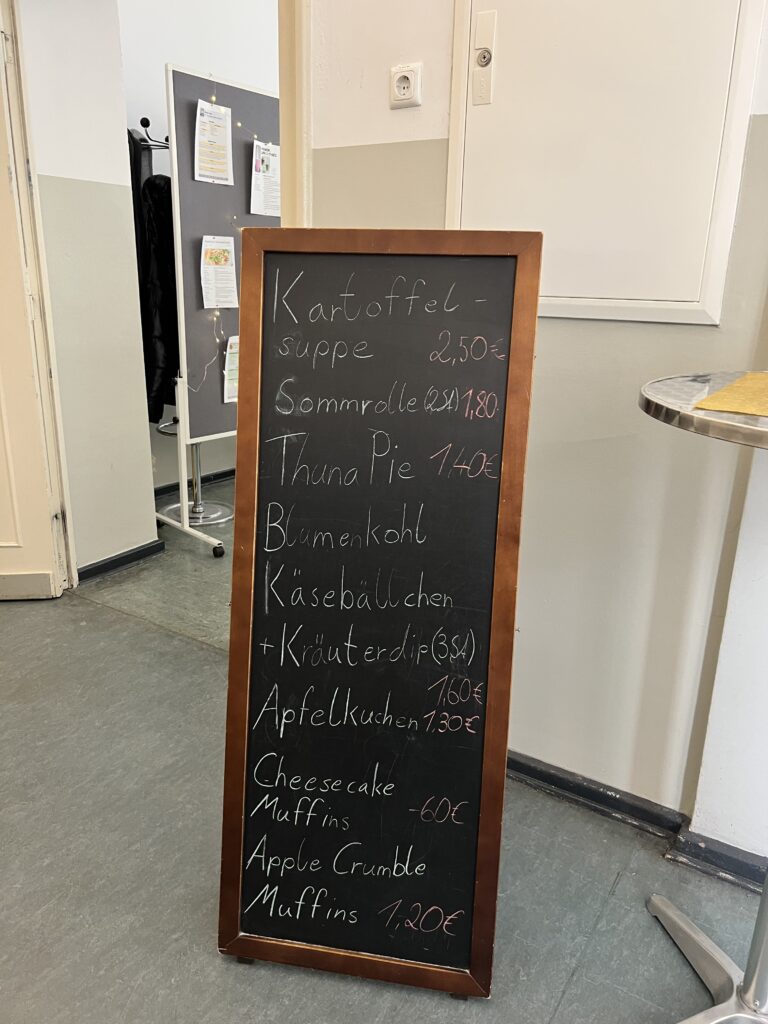 Kartoffel-
suppe 2,50€
Sommrolle (2St) 1,80
Thuna Pie 1,40€
Blumenkohl
Käsebällchen
+Kräuterdip (3St)
1,60€
Apfelkuchen 1,30€
Cheesecake
Muffins -60€
Apple Crumble
Muffins 1,20€